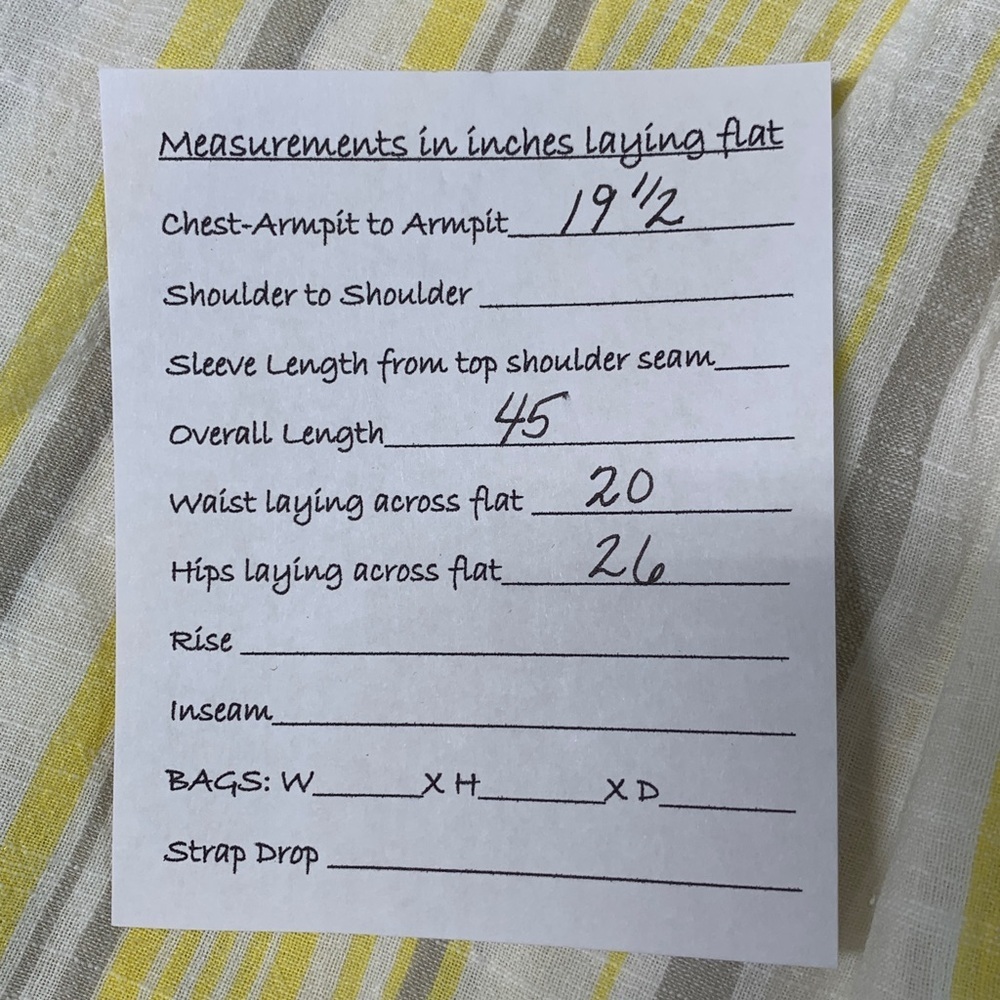 Measurements in inches laying flat
Chest-Armpit to Armpit 19 1/2
Shoulder to Shoulder
Sleeve Length from top shoulder seam
Overall Length 45
Waist laying across flat 20
Hips laying across flat 26
Rise
Inseam
BAGS: W______X H______X D______
Strap Drop